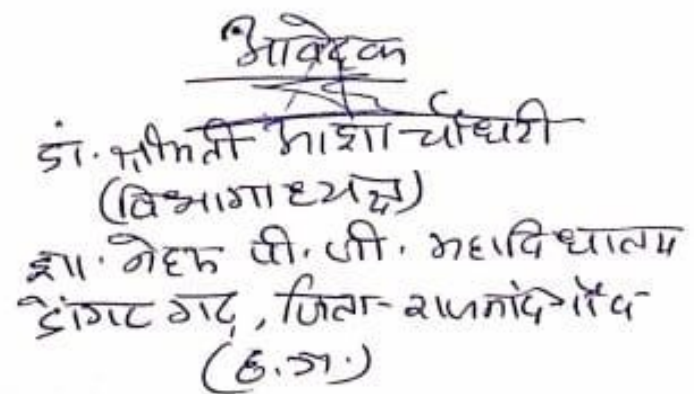 आवेदक
डॉ. श्रीमती आशा चौधरी
(विभागाध्यक्ष)
शा. नेहरू पी. जी. महाविद्यालय
डोंगरगढ़, जिला - राजनांदगाँव
(छ.ग.)